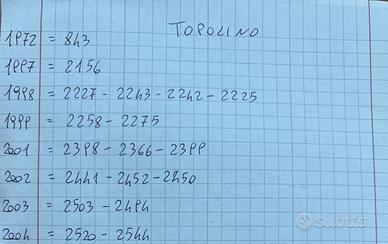 TOPOLINO
1972 = 843
1997 = 2156
1998 = 2227 - 2243 - 2242 - 2225
1999 = 2258 - 2275
2001 = 2398 - 2366 - 2399
2002 = 2441 - 2452 - 2450
2003 = 2503 - 2494
2004 = 2520 - 2544
subito